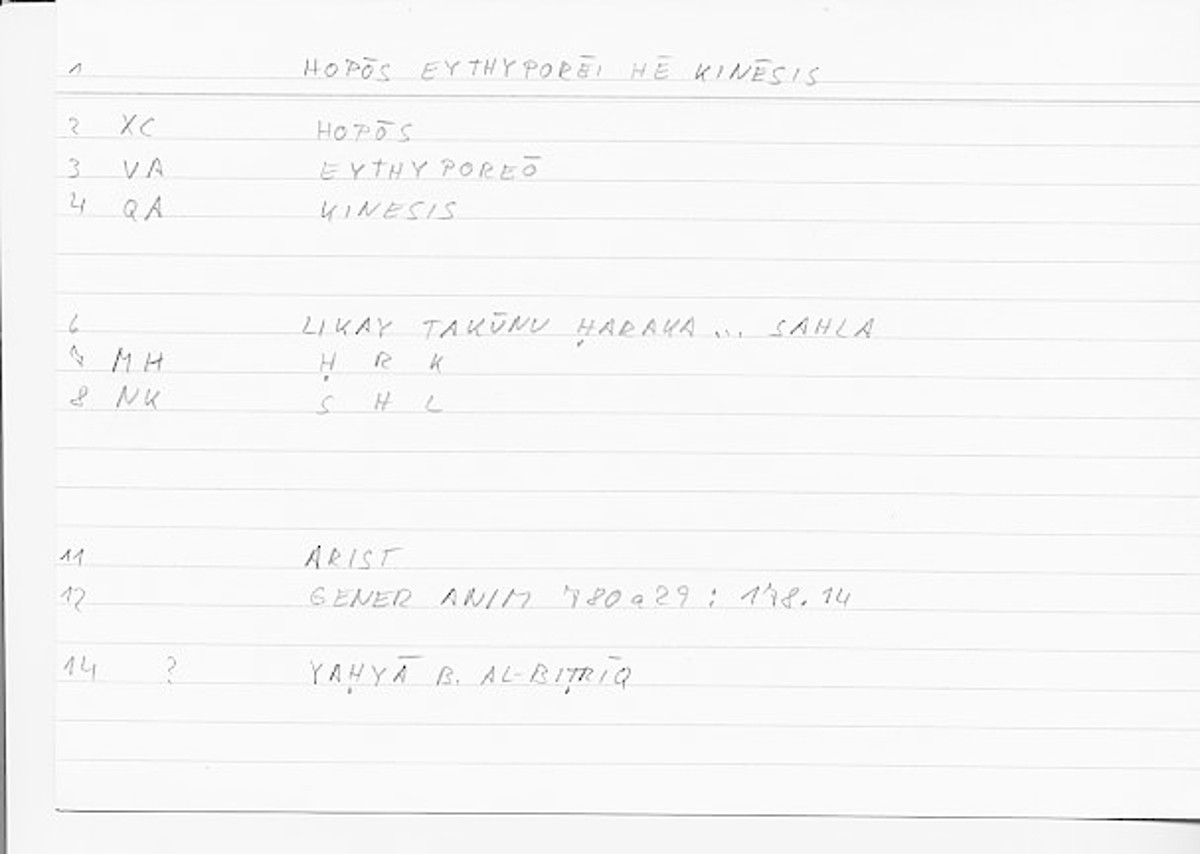 1 HOPŌS EYTHYPORĒI HĒ KINĒSIS
2 XC HOPŌS
3 VA EYTHYPOREŌ
4 QA KINESIS
6 LIKAY TAKŪNU ḤARAKA ... SAHLA
7 MH Ḥ R K
8 NK S H L
11 ARIST
12 GENER ANIM 780a29 : 178.14
14 ? YAḤYĀ B. AL-BIṬRĪQ